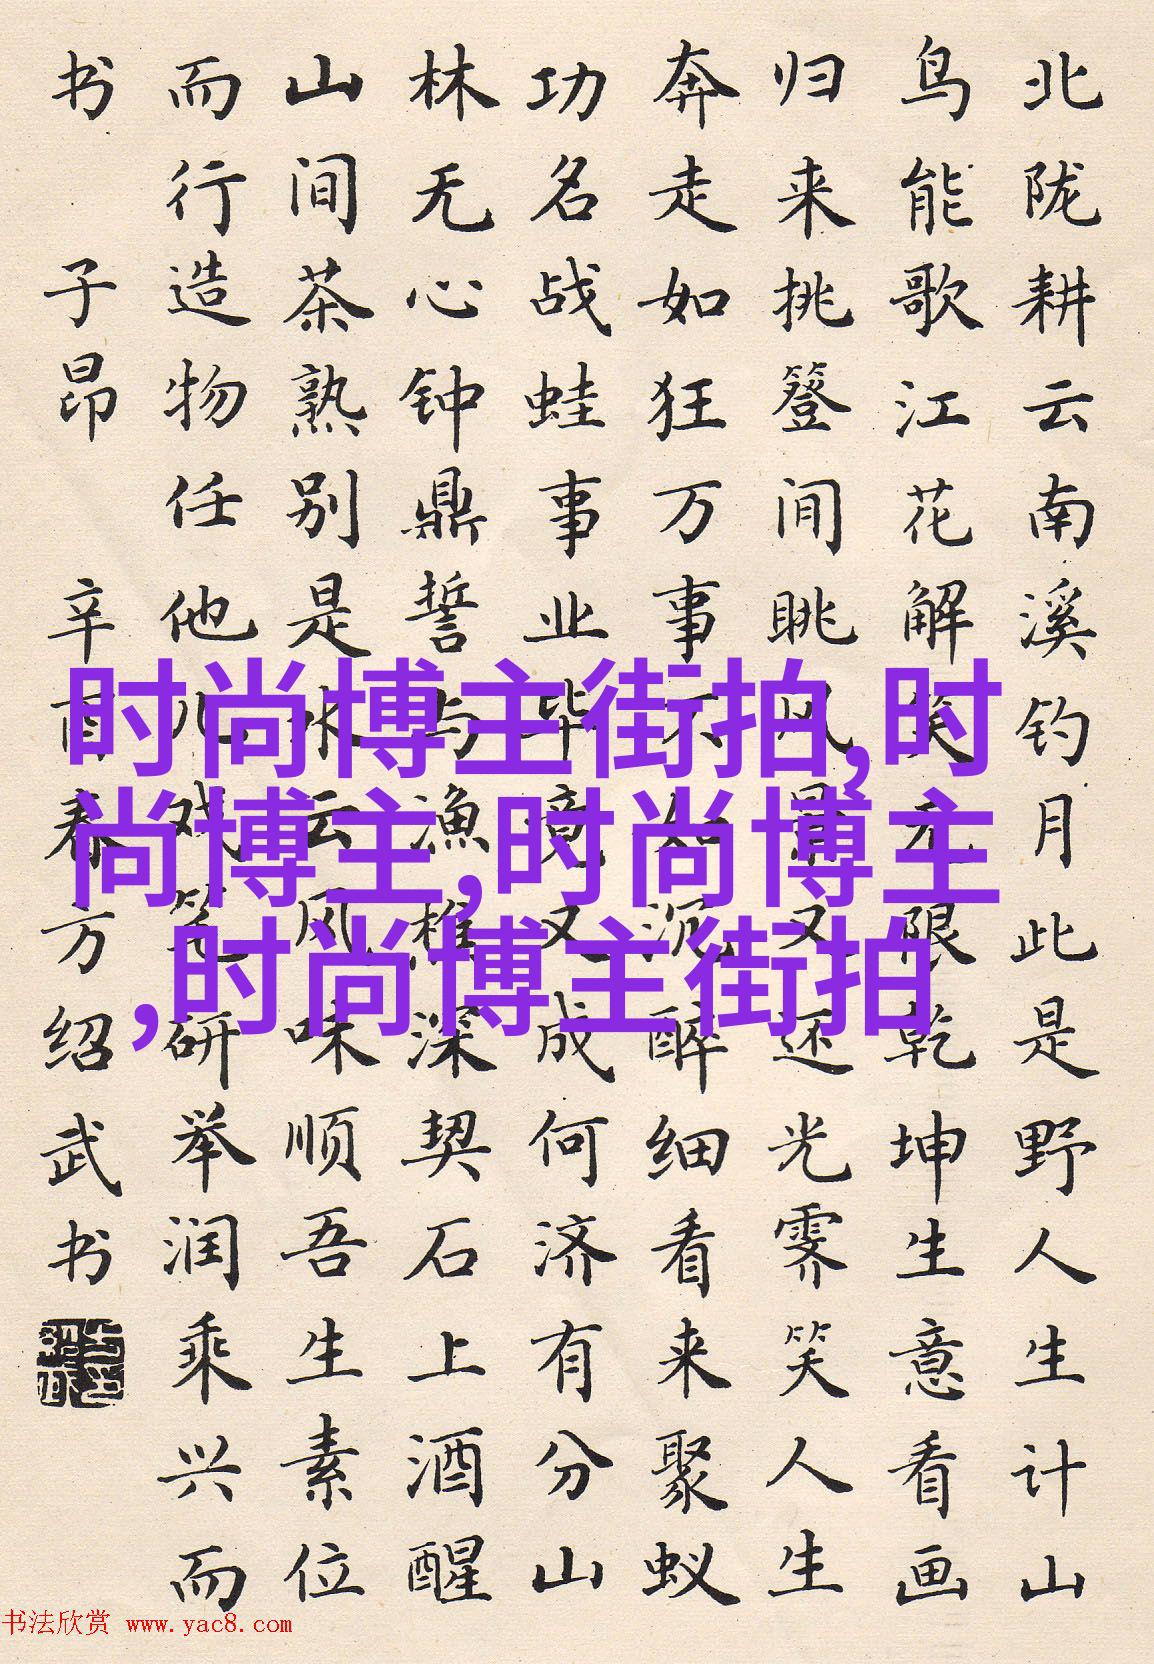 北陇耕云南溪钓月此是野人生计山
鸟能歌江花解笑无限乾坤生意看画
归来挑簦间眺风景又还光霁笑人生
奔走如狂万事不如沉醉细看来聚蚁
功名战蛙事业毕竟又成何济有分山
林无心钟鼎誓与渔樵深契石上酒醒
山间茶熟别是水云风味顺吾生素位
而行造物任他儿戏研举润乘兴而
书 子昂 辛酉春方绍武书
时尚博主街拍,时
尚博主,时尚博主
,时尚博主街拍
书法欣赏 www.yac8.com